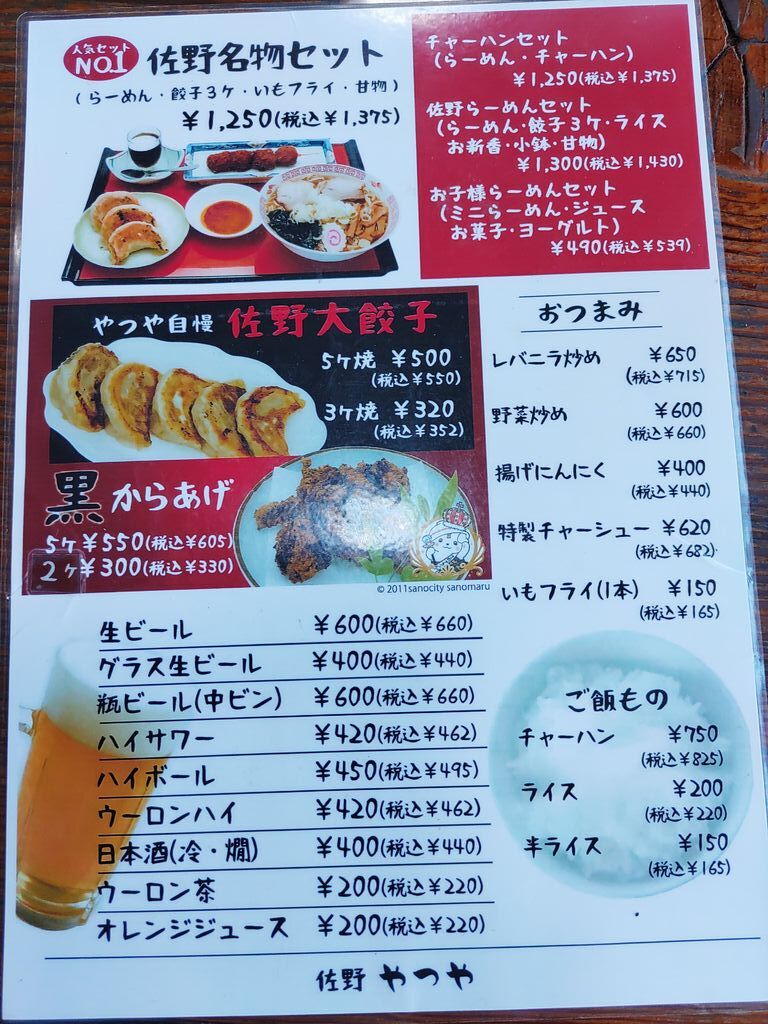 人気セット
NO.1
佐野名物セット
(らーめん・餃子3ケ・いもフライ・甘物)
¥1,250(税込¥1,375)
チャーハンセット
(らーめん・チャーハン)
¥1,250(税込¥1,375)
佐野らーめんセット
(らーめん・餃子3ケ・ライス
お新香・小鉢・甘物)
¥1,300(税込¥1,430)
お子様らーめんセット
(ミニらーめん・ジュース
お菓子・ヨーグルト)
¥490(税込¥539)
やつや自慢 佐野大餃子
5ケ焼 ¥500
(税込¥550)
3ケ焼 ¥320
(税込¥352)
黒からあげ
5ケ¥550(税込¥605)
2ケ¥300(税込¥330)
© 2011sanocity sanomaru
おつまみ
レバニラ炒め ¥650
(税込¥715)
野菜炒め ¥600
(税込¥660)
揚げにんにく ¥400
(税込¥440)
特製チャーシュー ¥620
(税込¥682)
いもフライ(1本) ¥150
(税込¥165)
生ビール ¥600(税込¥660)
グラス生ビール ¥400(税込¥440)
瓶ビール(中ビン) ¥600(税込¥660)
ハイサワー ¥420(税込¥462)
ハイボール ¥450(税込¥495)
ウーロンハイ ¥420(税込¥462)
日本酒(冷・燗) ¥400(税込¥440)
ウーロン茶 ¥200(税込¥220)
オレンジジュース ¥200(税込¥220)
ご飯もの
チャーハン ¥750
(税込¥825)
ライス ¥200
(税込¥220)
半ライス ¥150
(税込¥165)
佐野 やつや